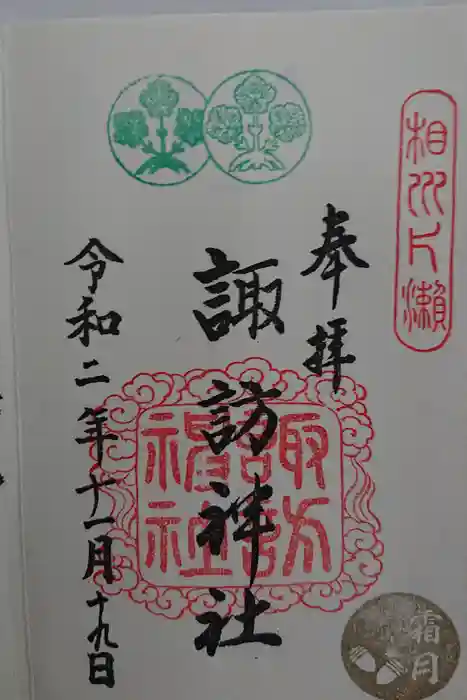 相州片瀬
奉拝
諏訪神社
諏訪
神社
令和二年十一月十九日
霜月